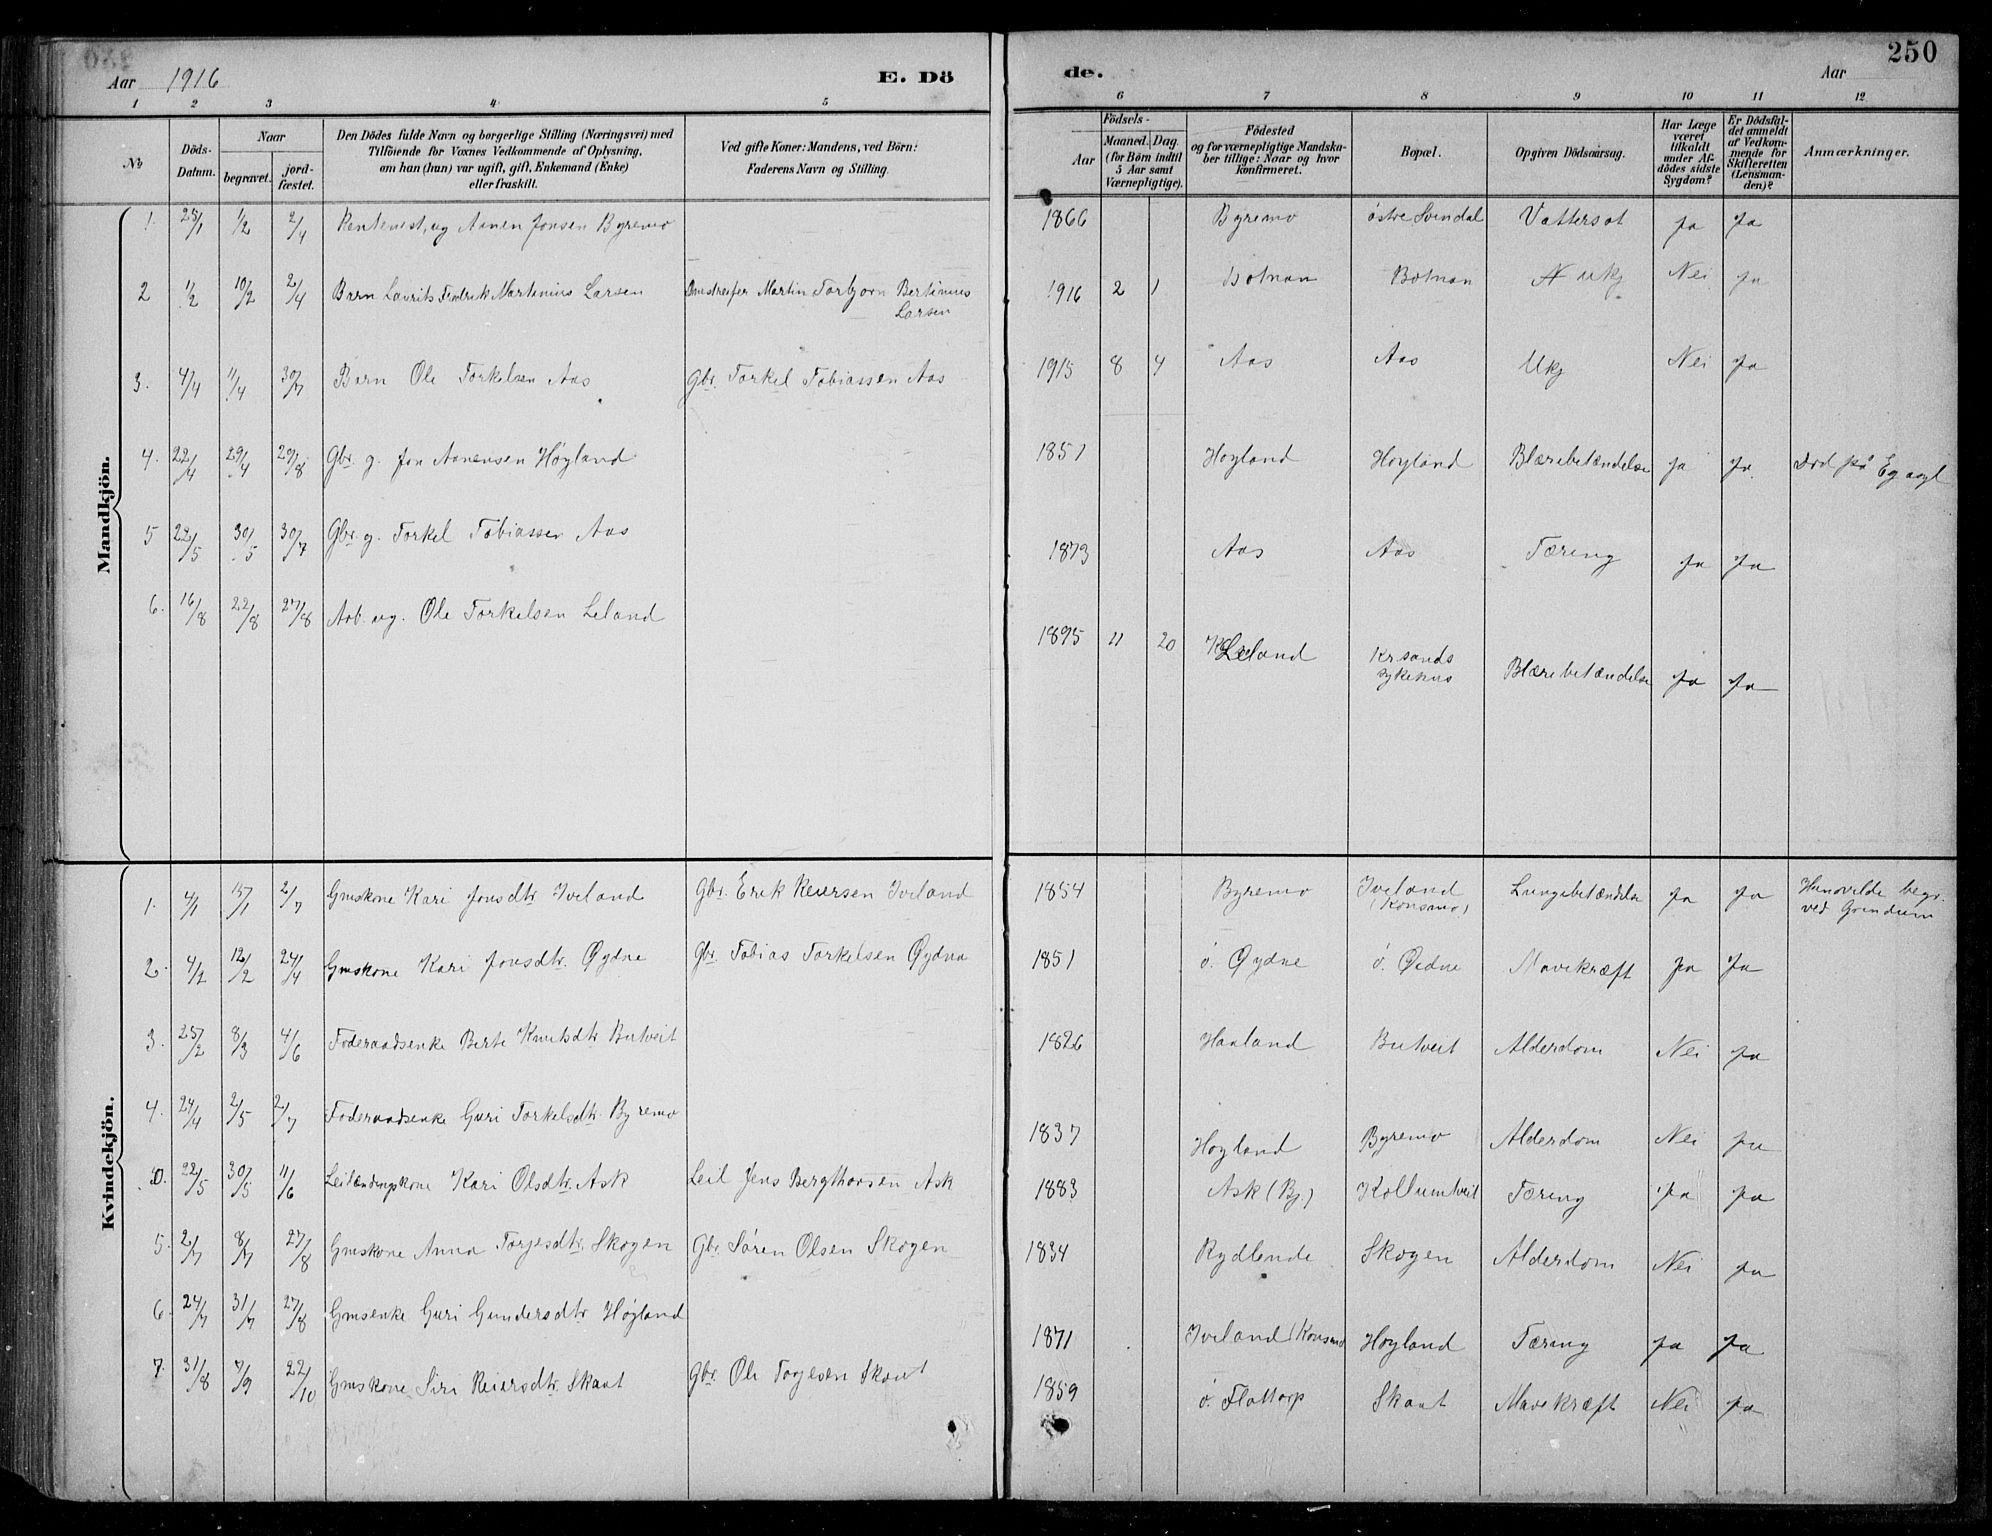 250
Aar 1916 E. Dö de. Aar
1 2 3 4 5 6 7 8 9 10 11 12
No
Döds-Datum.
Naar
begravet.
jord-fæstet.
Den Dödes fulde Navn og borgerlige Stilling (Næringsvei) med
Tilföiende for Voxnes Vedkommende af Oplysning,
om han (hun) var ugift, gift, Enkemand (Enke)
eller fraskilt.
Ved gifte Koner: Mandens, ved Börn:
Faderens Navn og Stilling.
Födsels-
Aar
Maaned. Dag.
(for Börn indtil
5 Aar samt
Værnepligtige).
Födested
og for værnepligtige Mandska-
ber tillige: Naar og hvor
konfirmeret.
Bopæl.
Opgiven Dödsaarsag.
Har Læge
været
tilkaldt
under Af-
dödes sidste
Sygdom?
Er Dödsfal-
det anmeldt
af Vedkom-
mende for
Skifteretten
(Lensman-
den)?
Anmærkninger.
Mandkjön.
1. 25/1 1/2 2/4 Rentenist, ug Aanen Jonsen Byremo 1866 Byremo østre Svindal Vattersot ja ja
2 1/2 10/2 2/4 Barn Lavrits Fredrik Martinius Larsen Martin Torbjørn Bertinius
Larsen 1916 2 1 Botnan Botnan Ukj Nei ja
3. 4/4 11/4 30/7 Barn Ole Torkelsen Aas Gbr. Torkel Tobiassen Aas 1915 8 4 Aas Aas Ukj Nei ja
4. 22/4 29/4 29/8 Gbr. g. Jon Aanensen Høyland 1851 Høyland Høyland Blærebetændelse ja ja. Død på Eg asyl
5 22/5 30/5 30/7 Gbr. g. Torkel Tobiassen Aas 1873 Aas Aas Tæring ja ja
6. 16/8 22/8 27/8 Arb. ug. Ole Torkelsen Leland 1895 11 20 Leland Kr.sands
sykehus Blærebetændelse ja ja
Kvindekjön.
1. 4/1 15/1 2/7 Gmskone Kari Jonsdtr Iveland Gbr. Erik Reiersen Iveland 1854 Byremo Iveland
(Konsmo) Lungebetændelse ja ja Hun ovilde begr.
ved Grindum
2. 4/2 12/2 24/4 Gmskone Kari Jonsdtr. Øydne Gbr. Tobias Torkelsen Øydna 1851 ö. Øydne ö. Øidne Mavekræft ja ja
3. 25/2 8/3 4/6 Føderaadsenke Berte Knutsdtr Butveit 1826 Haaland Butveit Alderdom Nei ja
4. 24/4 2/5 2/7 Føderaadsenke Guri Torkelsdtr. Byremo 1837 Høyland Byremo Alderdom Nei ja
D. 22/5 30/5 11/6 Leilændingskone Kari Olsdtr. Ask Leil Jens Bergthorsen Ask 1883 Ask (Bj.) Kollumtveit Tæring ja ja
5. 2/7 8/7 27/8 Gmskone Anna Torjesdtr. Skogen Gbr. Søren Olsen Skogen 1834 Rydlende Skogen Alderdom Nei ja
6. 24/7 31/7 27/8 Gmsenke Guri Gundersdtr Høyland 1871 Iveland (Konsmo Høyland Tæring ja ja
7. 31/8 7/9 22/10 Gmskone Siri Reiersdtr. Skaat Gbr. Ole Torjesen Skaat 1859 ö. Flottorp Skaat Mavekræft Nei ja